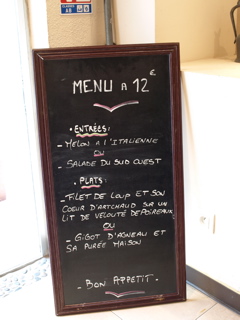 MENU A 12 €
• ENTRÉES:
- MELON A L'ITALIENNE
OU
- SALADE DU SUD OUEST
• PLATS:
- FILET DE LOUP ET SON
COEUR D'ARTCHAUD SUR UN
LIT DE VELOUTÉ DE POIREAUX
OU
- GIGOT D'AGNEAU ET
SA PURÉE MAISON
- BON APPETIT -